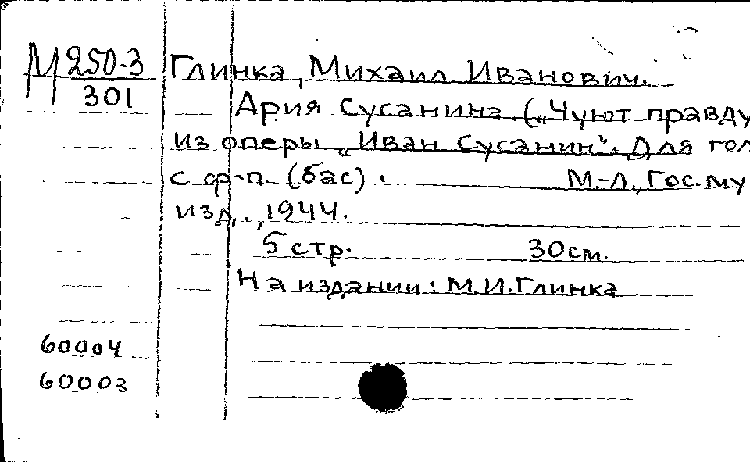 М 250-3
301
Глинка, Михаил Иванович.
Ария Сусанина („Чуют правду
из оперы „Иван Сусанин". Для гол
с ф-п. (бас). М.-Л., Гос. му
изд., 1944.
5 стр. 30 см.
На издании: М.И.Глинка
60004
60003